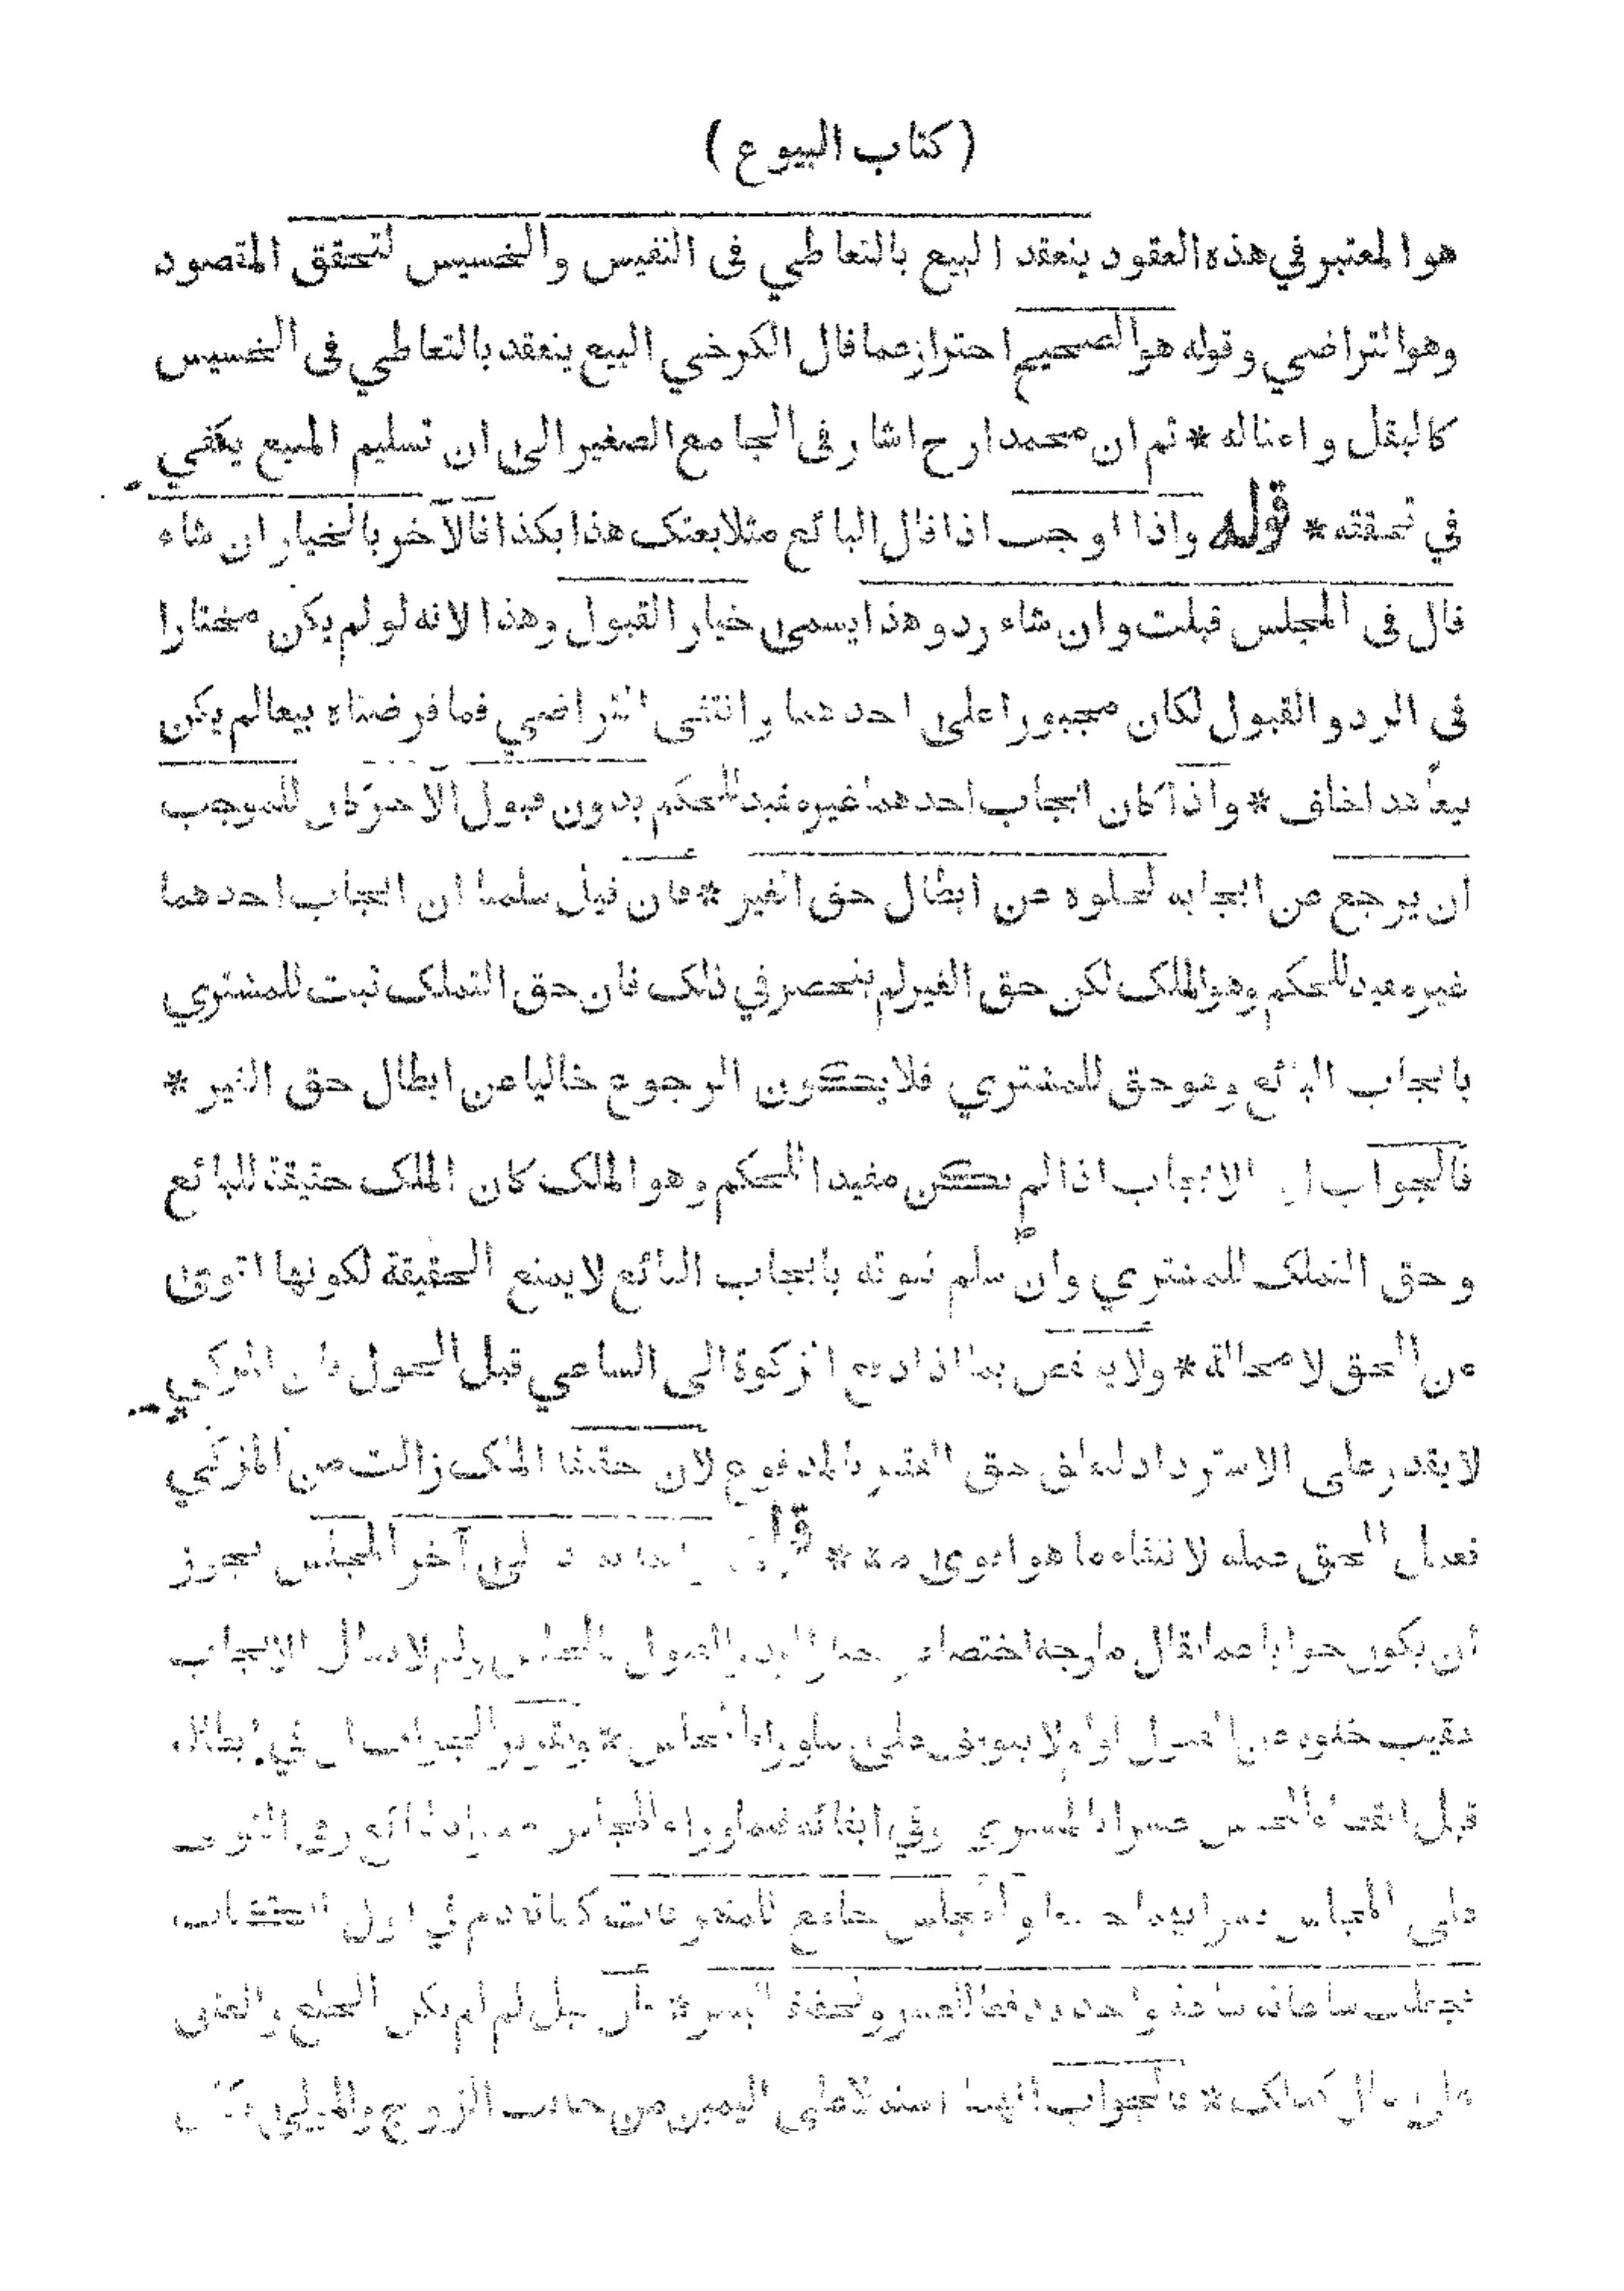 ( كتاب البيوع )
هو المعتبر في هذه العقود ينعقد البيع بالتعاطي فى النفيس والخسيس لتحقق المقصود
وهو التراضي وقوله هو الصحيح احتراز عما قال الكرخي البيع ينعقد بالتعاطي فى الخسيس
كالبقل وامثاله * ثم ان محمدا رح اشار فى الجامع الصغير الى ان تسليم المبيع يكفي
في تحققه * قوله واذا اوجب اذا قال البائع مثلا بعتك هذا بكذا فالآخر بالخيار ان شاء
قال فى المجلس قبلت وان شاء رد وهذا يسمى خيار القبول وهذا لانه لو لم يكن مختارا
فى الرد والقبول لكان مجبورا على احدهما وانتفى التراضي فما فرضناه بيعا لم يكن
بيعا هذا خلف * واذا كان ايجاب احدهما غير مفيد للحكم بدون قبول الآخر كان للموجب
ان يرجع عن ايجابه لخلوه عن ابطال حق الغير * فان قيل سلمنا ان ايجاب احدهما
غير مفيد للحكم وهو الملك لكن حق الغير لم ينحصر في ذلك فان حق التملك ثبت للمشتري
بايجاب البائع وهو حق للمشتري فلا يكون الرجوع خاليا عن ابطال حق الغير *
فالجواب ان الايجاب اذا لم يكن مفيدا للحكم وهو الملك كان الملك حقيقة للبائع
وحق التملك للمشتري وان سلم ثبوته بايجاب البائع لا يمنع الحقيقة لكونها اقوى
من الحق لا محالة * ولا ينتقض بما اذا دفع الزكوة الى الساعي قبل الحول فان المزكي
لا يقدر على الاسترداد لتعلق حق الفقير بالمدفوع لان حقيقة الملك زالت من المزكي
فعمل الحق عمله لانتفاء ما هو اقوى منه * الى آخر المجلس يجوز
ان يكون جوابا عما يقال ما وجه اختصاص خيار الرد والقبول بالمجلس ولم لا يبطل الايجاب
عقيب خلوه عن القبول اولم لا يتوقف على ما وراء المجلس * وتقرير الجواب ان في ابطاله
قبل انقضاء المجلس عسرا بالمشتري وفي ابقائه فيما وراء المجلس عسرا بالبائع وفي التوقف
على المجلس يسرا بهما جميعا والمجلس جامع للمتفرقات كما تقدم في اول الكتاب
فجعلت ساعاته ساعة واحدة دفعا للعسر وتحقيقا لليسر * فان قيل فلم لم يكن الخلع والعتق
على مال كذلك * فالجواب انهما اشتملا على اليمين من جانب الزوج والمولى